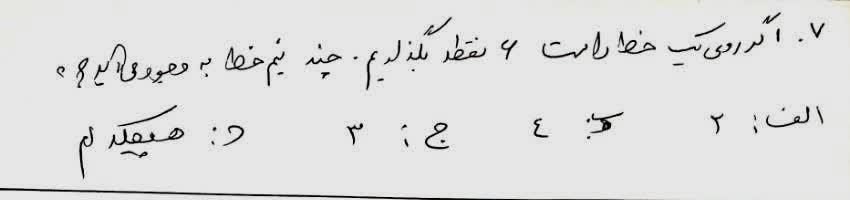 ۷. اگر روی یک خط راست ۶ نقطه بگذاریم. چند نیم خط به وجود می آید؟
الف: ۲ ب: ٤ ج: ۳ د: هیچکدام